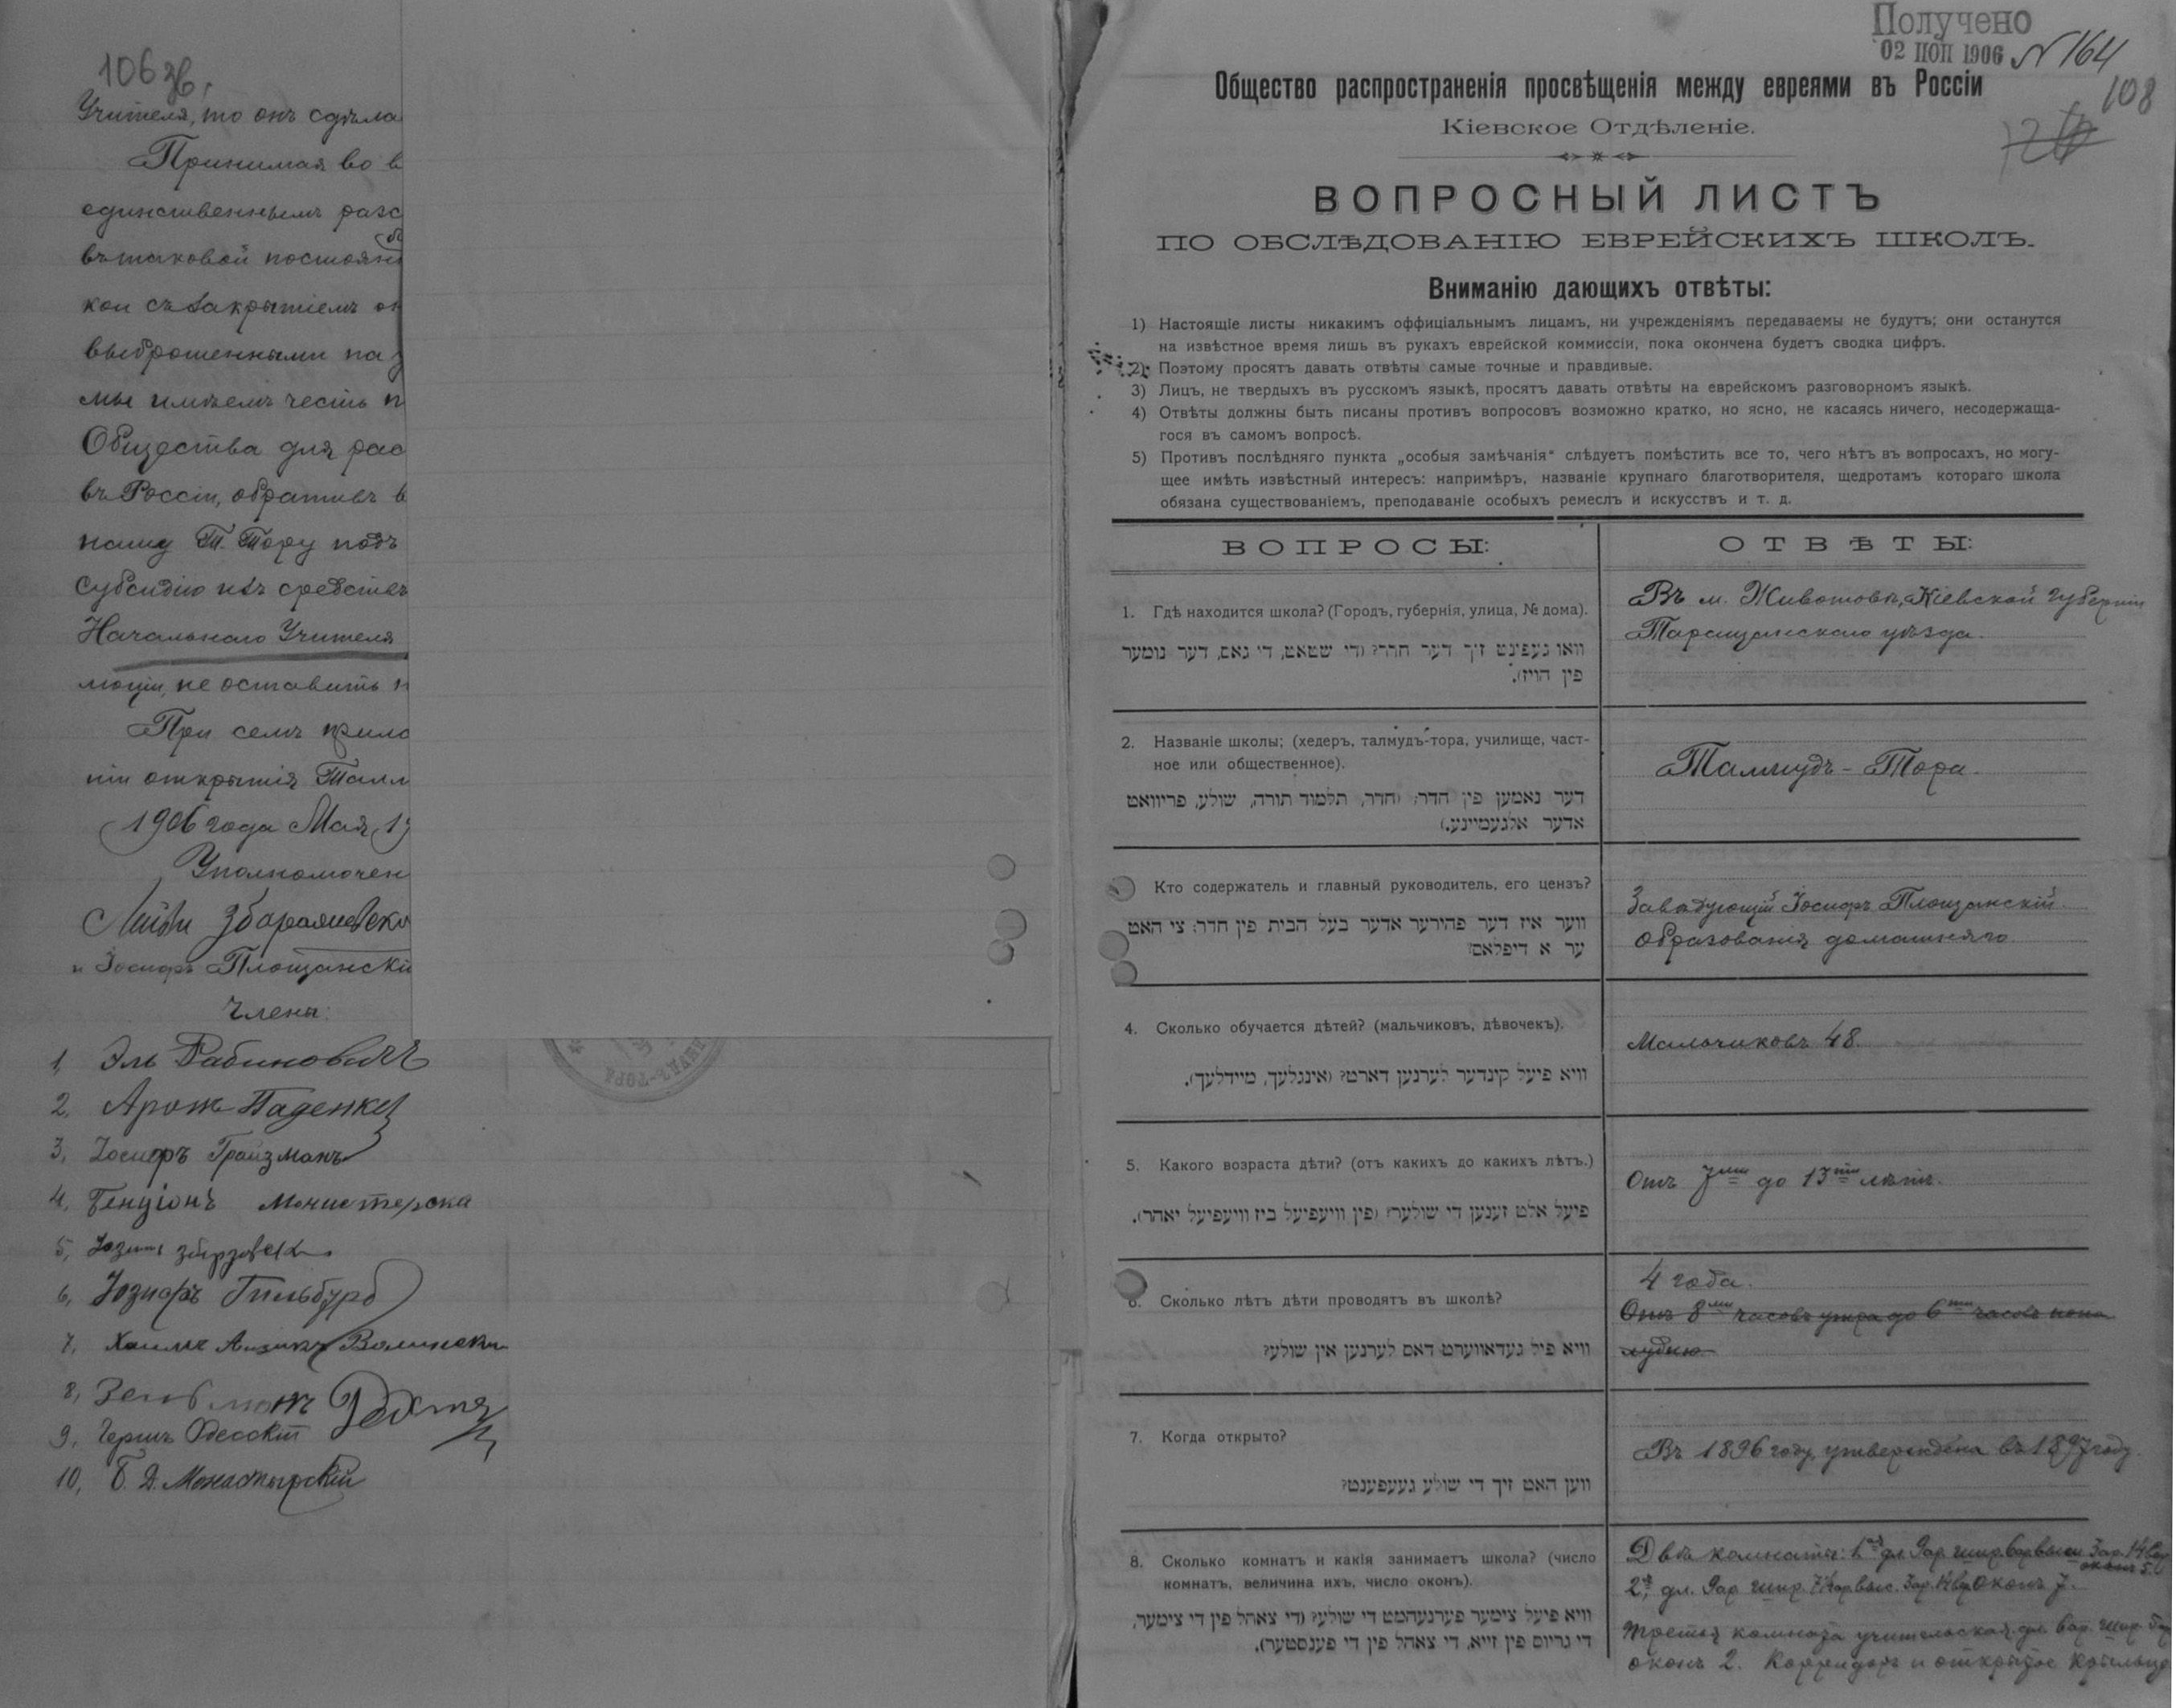 106 об.
Учителя, то онъ сдѣла
Принимая во в
единственнымъ разс
въ таковой постоянн
кои съ закрытіемъ ок
выброшенными на у
мы имѣемъ честь п
Общества для рас
въ Россіи, обративъ в
нашу Т. Тору подъ
субсидію изъ средствъ
Начальнаго Учителя
не оставить н
При семъ прило
ніи открытія Талм
1906 года Мая 1
Уполномочен
и Іосифъ Площанскій
Члены:
1, Эль Рабиновичъ
2, Аронъ Паденке
3, Іосифъ Гройзманъ
4, Бенціонъ Монистерска
5,
6, Іозифъ Гильбурд
7, Хаимъ Айзикъ Волински
8,
9, Гершъ Одесскій
10, Б. Д. Монастырскій
ТАЛМУДЪ-ТОРА
Получено
02 ІЮЛ 1906 № 164
108
126
Общество распространенія просвѣщенія между евреями въ Россіи
Кіевское Отдѣленіе.
ВОПРОСНЫЙ ЛИСТЪ
ПО ОБСЛѢДОВАНІЮ ЕВРЕЙСКИХЪ ШКОЛЪ.
Вниманію дающихъ отвѣты:
1) Настоящіе листы никакимъ оффиціальнымъ лицамъ, ни учрежденіямъ передаваемы не будутъ; они останутся
на извѣстное время лишь въ рукахъ еврейской коммиссіи, пока окончена будетъ сводка цифръ.
2) Поэтому просятъ давать отвѣты самые точные и правдивые.
3) Лицъ, не твердыхъ въ русскомъ языкѣ, просятъ давать отвѣты на еврейскомъ разговорномъ языкѣ.
4) Отвѣты должны быть писаны противъ вопросовъ возможно кратко, но ясно, не касаясь ничего, несодержаща-
гося въ самомъ вопросѣ.
5) Противъ послѣдняго пункта „особыя замѣчанія" слѣдуетъ помѣстить все то, чего нѣтъ въ вопросахъ, но могу-
щее имѣть извѣстный интересъ: напримѣръ, названіе крупнаго благотворителя, щедротамъ котораго школа
обязана существованіемъ, преподаваніе особыхъ ремеслъ и искусствъ и т. д.
ВОПРОСЫ:
ОТВѢТЫ:
1. Гдѣ находится школа? (Городъ, губернія, улица, № дома).
וואו געפינט זיך דער חדר? (די שטאט, די גאס, דער נומער
פין הויז).
Въ м. Животовѣ, Кіевской губерніи
Таращанскаго уѣзда.
2. Названіе школы; (хедеръ, талмудъ-тора, училище, част-
ное или общественное).
דער נאמען פין חדר: (חדר, תלמוד תורה, שולע, פריוואט
אדער אלגעמיינע.)
Талмудъ - Тора.
Кто содержатель и главный руководитель, его цензъ?
ווער איז דער פהירער אדער בעל הבית פין חדר: צי האט
ער א דיפלאם?
Завѣдующій Іосифъ Площанскій.
Образованія домашняго.
4. Сколько обучается дѣтей? (мальчиковъ, дѣвочекъ).
וויא פיעל קינדער לערנען דארט? (אינגלעך, מיידלעך).
Мальчиковъ 48.
5. Какого возраста дѣти? (отъ какихъ до какихъ лѣтъ.)
פיעל אלט זענען די שולער? (פין וויעפיעל ביז וויעפיעל יאהר).
Отъ 7ми до 13ти лѣтъ.
6. Сколько лѣтъ дѣти проводятъ въ школѣ?
וויא פיל געדאווערט דאס לערנען אין שולע?
4 года.
Отъ 8ми часовъ утра до 6ти часовъ попо
лудню
7. Когда открыто?
ווען האט זיך די שולע געעפענט?
Въ 1896 году, утверждена въ 1897 году.
8. Сколько комнатъ и какія занимаетъ школа? (число
комнатъ, величина ихъ, число оконъ).
וויא פיעל צימער פערנעהמט די שולע? (די צאהל פין די צימער,
די גרויס פין זייא, די צאהל פין די פענסטער).
Двѣ комнаты: 1ая дл. 9ар. шир. 6ар. выш. 3ар. 14 вер
оконъ 5.
2я дл. 9ар шир. 7½ар. выс. 3ар. 14 вер оконъ 7.
Третья комната учительская дл. 6ар. шир. 5ар
оконъ 2. Корридоръ и открытое крыльцо